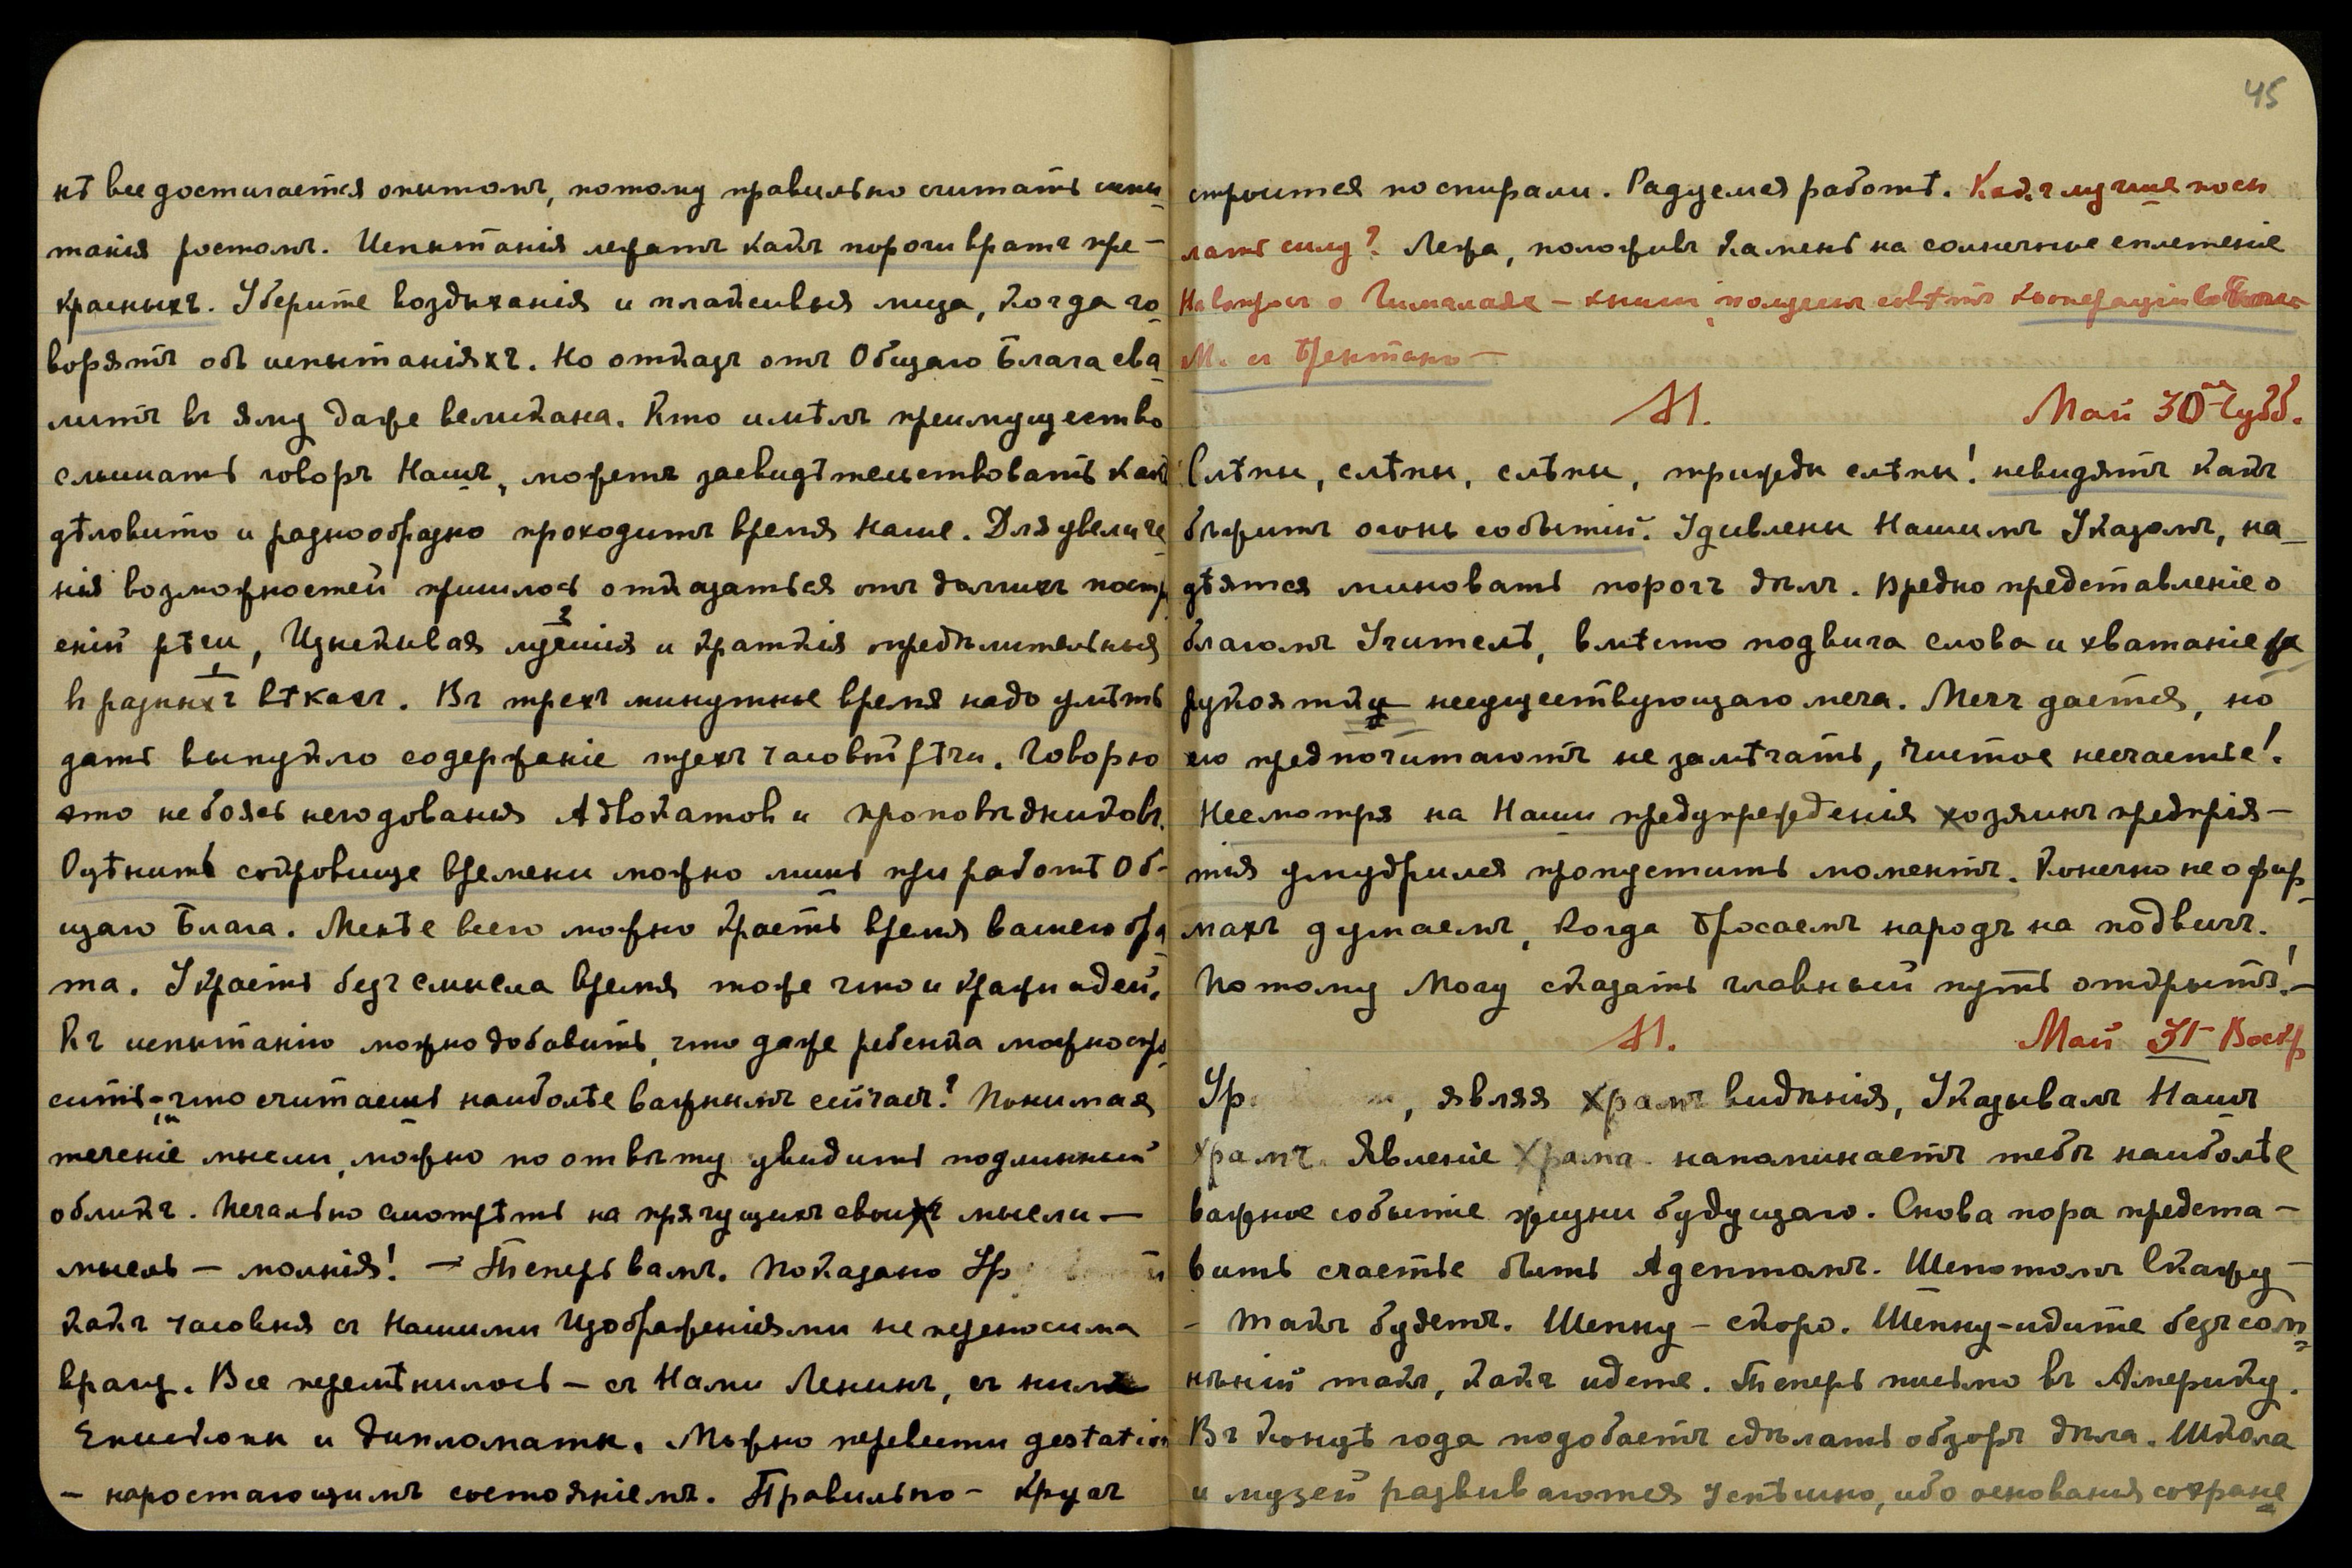 нѣ все достигается опытомъ, потому правильно считать испы-
танія ростомъ. Испытанія лежатъ какъ пороги вратъ пре-
красныхъ. Уберите воздыханія и плаксивыя лица, когда го-
ворятъ объ испытаніяхъ. Но отказъ отъ Общаго Блага сва-
литъ въ яму даже великана. Кто имѣлъ преимущество
слышать говоръ Нашъ, можетъ засвидѣтельствовать какъ
дѣловито и разнообразно проходитъ время Наше. Для увеличе-
нія возможностей пришлось отказаться отъ долгихъ постр
еній рѣчи, Изыскивая лучшія и краткія опредѣлительныя
въ разныхъ вѣкахъ. Въ трехъ минутные время надо умѣть
дать выпукло содержаніе трехъ часовой рѣчи. Говорю
это не боясь негодованія Адвокатовъ и проповѣдниковъ.
Оцѣнить сокровище времени можно лишь при работѣ Об-
щаго Блага. Менѣе всего можно красть время вашего бра-
та. Украсть безъ смысла время тоже что и кражи идей.
Къ испытанію можно добавить, что даже ребенка можно спро-
сить - что считаешь наиболѣе важнымъ сейчасъ? Понимая
теченіе мысли, можно по отвѣту увидить подлинный
обликъ. Печально смотрѣть на прячущихъ своихъ мысли —
мысль — молнія! — Теперь вамъ. Показано Ур
какъ часовня съ Нашими Изображеніями не переносима
врагу. Все перемѣнилось — съ Нами Ленинъ, съ ними
Епископы и дипломаты. Можно перевести gestation
— наростающимъ состояніемъ. Правильно — кругъ
45
строится по спирали. Радуемся работѣ. Какъ лучше посы
лать силу? Лежа, положивъ Камень на солнечное сплетеніе
На вопросъ о Гималаяхъ — книги получатъ совѣтъ кооперація
М. съ
М. Май 30 Субб.
Слѣпы, слѣпы, слѣпы, трижды слѣпы! не видятъ какъ
бѣжитъ огонь событій. Удивлены Нашимъ Указомъ, на-
дѣятся миновать порогъ дѣлъ. Вредно представленіе о
благомъ Учителѣ, вмѣсто подвига слова и хватаніе за
рукоятку несуществующаго меча. Мечъ дается, но
его предпочитаютъ не замѣчать, чистое несчастье!
Несмотря на Наши предупрежденія хозяинъ предпрія-
тія умудрился пропустить моментъ. Конечно не о фир-
махъ думаемъ, когда бросаемъ народъ на подвигъ.
Потому Могу сказать главный путь открытъ! —
М. Май 31 Воскр
Ур , являя храмъ видѣнія, Указывалъ Нашъ
храмъ. Явленіе Храма напоминаетъ тебѣ наиболѣе
важное событіе жизни будущаго. Снова пора предста-
вить счастье быть Адептомъ. Шепотомъ Скажу —
— такъ будетъ. Шепну — скоро. Шепну — идите безъ сом-
нѣній такъ, какъ идете. Теперь письмо въ Америку.
Въ концѣ года подобаетъ сдѣлать обзоръ дѣла. Школа
и музей развиваются успѣшно, ибо основанія сохране